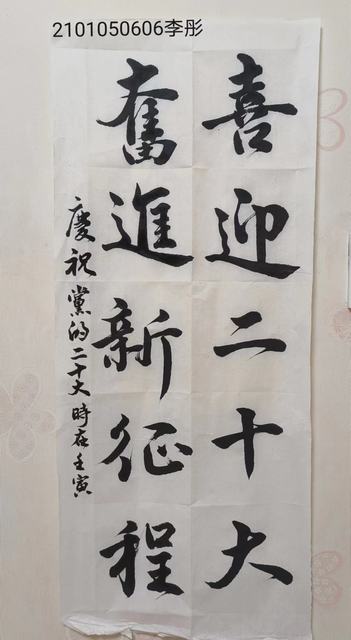 2101050606李彤
喜迎二十大
奮進新征程
慶祝黨的二十大時在壬寅